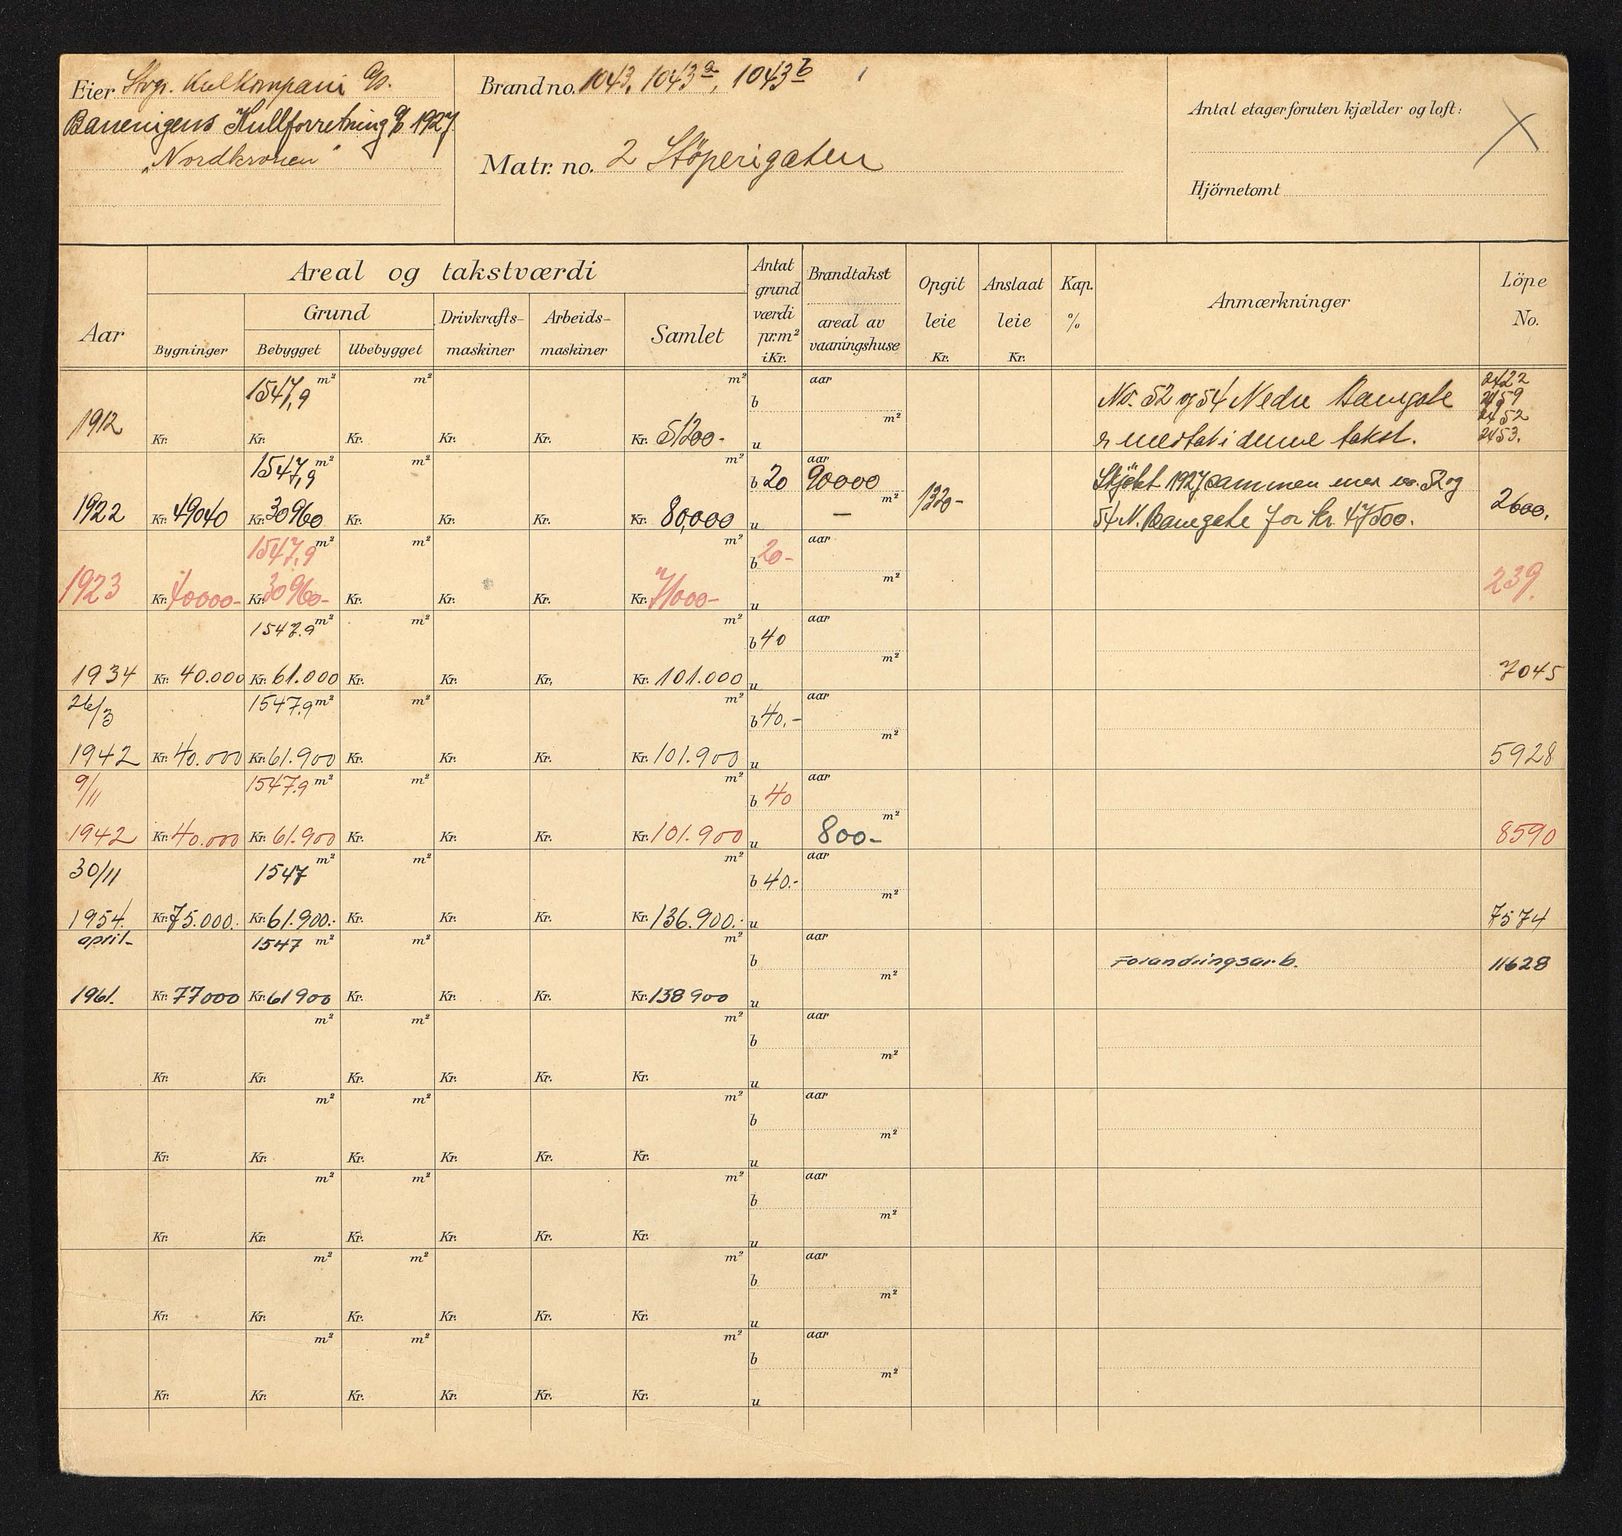 Eier Stvgr. Kulkompani A/S.
Banevigens Kullforretning A/S 1927
"Nordkronen"
Brand no. 1043, 1043a, 1043b
Matr. no. 2 Støperigaten
Antal etager foruten kjælder og loft:
Hjörnetomt
Aar
Areal og takstværdi
Bygninger
Grund
Bebygget Ubebygget
Drivkrafts-maskiner
Arbeids-maskiner
Samlet
Antat grund værdi pr. m² i Kr.
Brandtakst
areal av vaaningshuse
Opgit leie Kr.
Anslaat leie Kr.
Kap. %
Anmærkninger
Löpe No.
1547,9 m² m² m² aar No. 52 og 54 Nedre Banegate 2422
b m² 2459
2452
1912 Kr. Kr. Kr. Kr. Kr. Kr. 51200- u er medtat i denne takst. 2453.
1547,9 m² m² m² b 20 aar 90000 m² 1320- Skjøtet 1927 sammen med no. 52 og
1922 Kr. 49040 Kr. 30960 Kr. Kr. Kr. Kr. 80,000 u — 54 N. Banegate for kr. 47500. 2600.
1547,9 m² m² m² b 20- aar m²
1923 Kr. 40000- Kr. 30960- Kr. Kr. Kr. Kr. 71000- u 239.
1547.9 m² m² m² b 40 aar m²
1934 Kr. 40.000 Kr. 61.000 Kr. Kr. Kr. Kr. 101.000 u 7045
26/3 1547.9 m² m² m² b 40.- aar m²
1942 Kr. 40.000 Kr. 61.900 Kr. Kr. Kr. Kr. 101.900 u 5928
9/11 1547.9 m² m² m² b 40 aar m²
1942 Kr. 40.000 Kr. 61.900 Kr. Kr. Kr. Kr. 101.900 u 800- 8590
30/11 1547 m² m² m² b 40.- aar m²
1954. Kr. 75.000.- Kr. 61.900.- Kr. Kr. Kr. Kr. 136.900.- u 7574
april- 1547 m² m² m² b aar m² Forandringsarb. 11628
1961. Kr. 77000 Kr. 61900 Kr. Kr. Kr. Kr. 138900 u
m² m² m² b aar m²
Kr. Kr. Kr. Kr. Kr. Kr. u
m² m² m² b aar m²
Kr. Kr. Kr. Kr. Kr. Kr. u
m² m² m² b aar m²
Kr. Kr. Kr. Kr. Kr. Kr. u
m² m² m² b aar m²
Kr. Kr. Kr. Kr. Kr. Kr. u
m² m² m² b aar m²
Kr. Kr. Kr. Kr. Kr. Kr. u